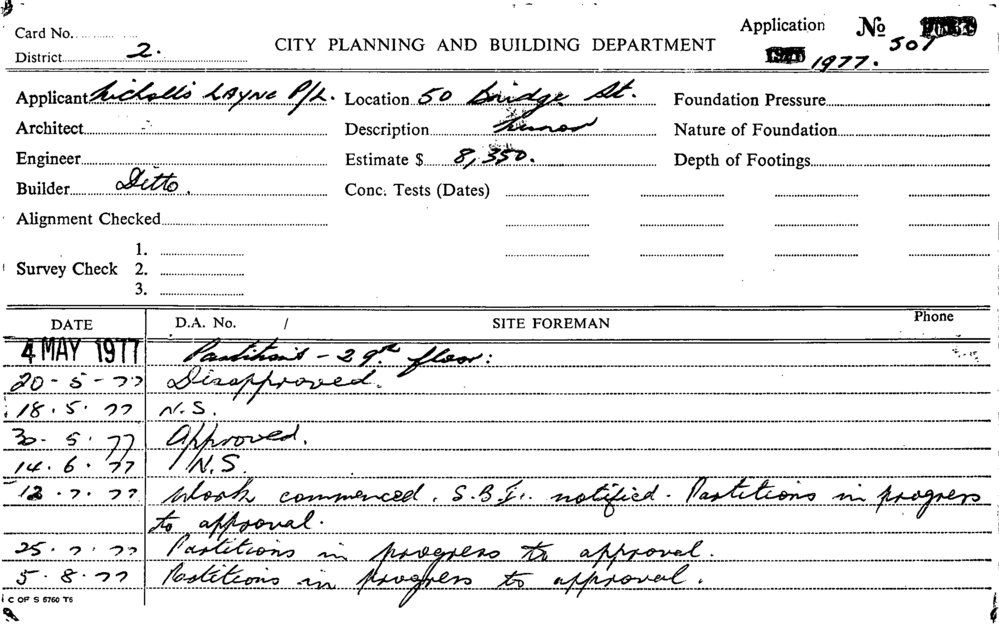 Card No.
District 2.
CITY PLANNING AND BUILDING DEPARTMENT
Application No 501
1977.
Applicant Nicholls Layne P/L. Location 50 Bridge St. Foundation Pressure
Architect Description Minor Nature of Foundation
Engineer Estimate $ 8,350. Depth of Footings
Builder Ditto. Conc. Tests (Dates)
Alignment Checked
Survey Check 1.
2.
3.
DATE D.A. No. / SITE FOREMAN Phone
4 MAY 1977 Partitions - 29th floor:
20-5-77 Disapproved.
18.5.77 N.S.
30-5.77 Approved.
14.6.77 N.S.
12.7.77 Work commenced. S.B.I. notified. Partitions in progress
to approval.
25.7.77 Partitions in progress to approval.
5.8.77 Partitions in progress to approval.
C OF S 5760 T5